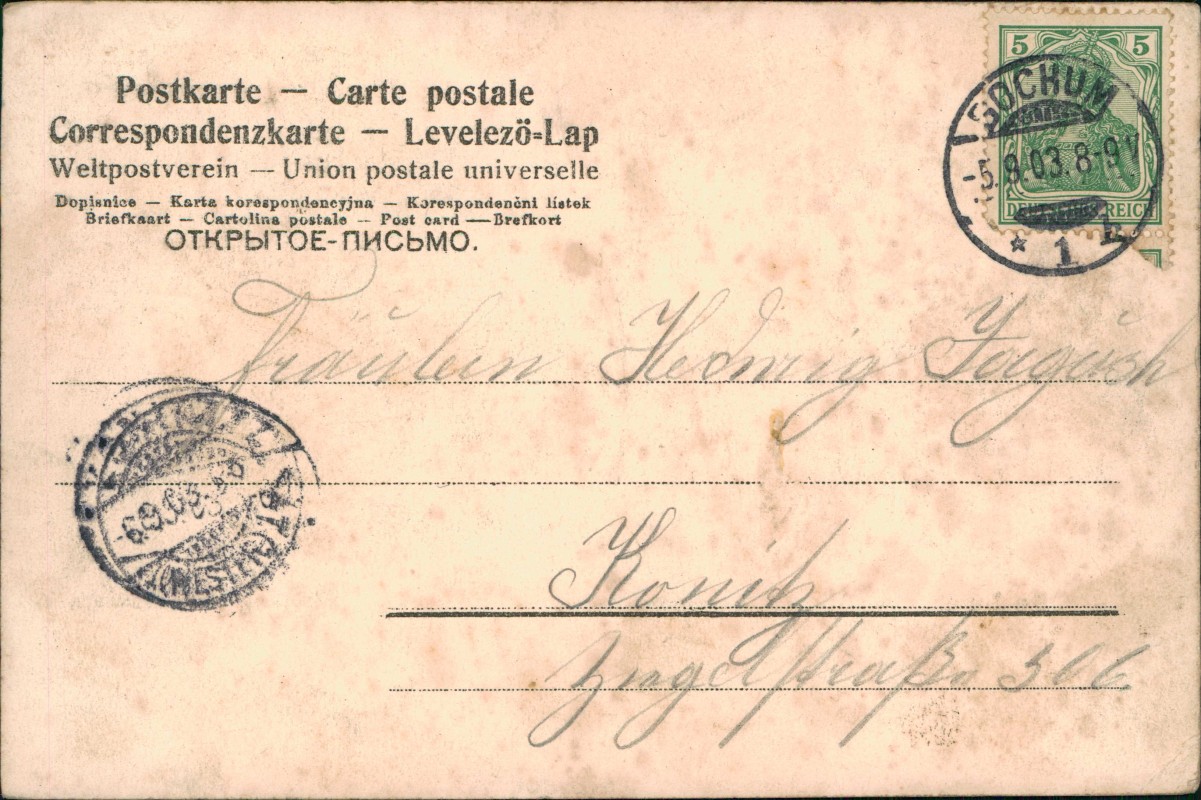 Postkarte — Carte postale
Correspondenzkarte — Levelezö=Lap
Weltpostverein — Union postale universelle
Dopisnice — Karta korespondencyjna — Korespondenčni listek
Briefkaart — Cartolina postale — Post card — Brefkort
ОТКРЫТОЕ-ПИСЬМО.
5 5
DEUTSCHES REICH
BOCHUM
-5.9.03.8-9V.
* 1
Fräulein Hedwig
Konitz
306
(WESTPR)